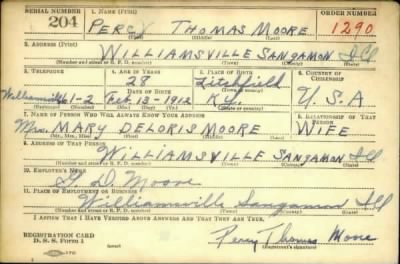 SERIAL NUMBER 1. NAME (Print) ORDER NUMBER
204 PERCY THOMAS MOORE 1290
(First) (Middle) (Last)
2. ADDRESS (Print)
WILLIAMSVILLE SANGAMON Ill
(Number and street or R. F. D. number) (Town) (County) (State)
3. TELEPHONE 4. AGE IN YEARS 5. PLACE OF BIRTH 6. COUNTRY OF CITIZENSHIP
28 Litchfield
DATE OF BIRTH (Town or county)
Williamsville 61-2 Feb. 13-1912 KY. U.S.A
(Exchange) (Number) (Mo.) (Day) (Yr.) (State or country)
7. NAME OF PERSON WHO WILL ALWAYS KNOW YOUR ADDRESS 8. RELATIONSHIP OF THAT PERSON
Mrs. MARY DELORIS MOORE WIFE
(Mr., Mrs., Miss) (First) (Middle) (Last)
9. ADDRESS OF THAT PERSON
WILLIAMSVILLE SANGAMON Ill
(Number and street or R. F. D. number) (Town) (County) (State)
10. EMPLOYER'S NAME
D. Moore
11. PLACE OF EMPLOYMENT OR BUSINESS
Williamsville Sangamon Ill
(Number and street or R. F. D. number) (Town) (County) (State)
I AFFIRM THAT I HAVE VERIFIED ABOVE ANSWERS AND THAT THEY ARE TRUE.
REGISTRATION CARD
D. S. S. Form 1 Percy Thomas Moore
(Registrant's signature)